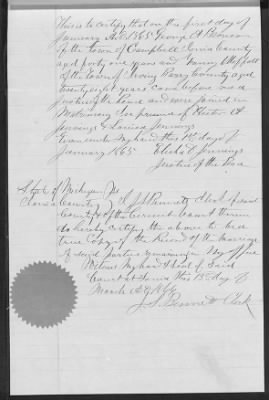 This is to certify that on the first day of
January A.D. 1865 George A
of the town of Campbell Ionia County
aged forty one years and Fanny
of the town of Irving Barry County aged
twenty eight years came before me a
Justice of the Peace and were joined in
Matrimony in presence of A
Jennings & Louisa Jennings
Given under my hand this day of
January 1865 Jennings
Justice of the Peace
State of Michigan
Ionia County I J S Bennett Clerk of said
County & of the Circuit Court Therein
do hereby certify the above to be a
true Copy of the Record of the marriage
of said parties remaining in my office
Witness my hand & Seal of Said
Court at Ionia this 13 day of
March A.D. 1866
J. S. Bennett Clerk